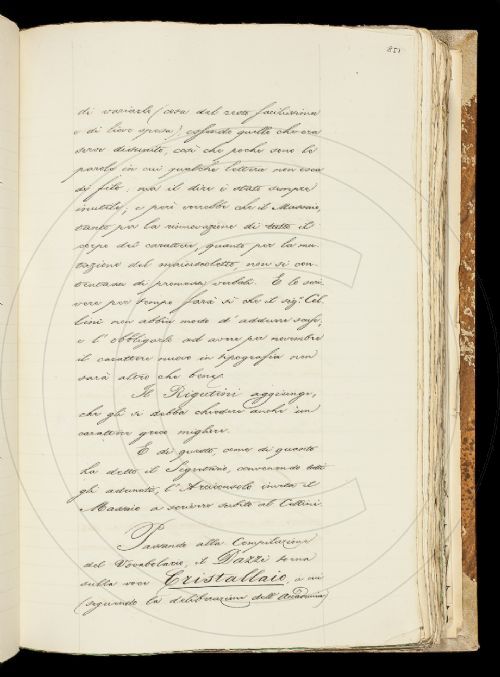 851
di variarle (cosa del resto facilissima
e di lieve spesa) essendo quelle che ora
serve disusate, così che poche sono le
parole in cui qualche lettera non esca
di filo; ma il dire è stato sempre
inutile, e però vorrebbe che il Massaio,
tanto per la rinnovazione di tutto il
corpo del carattere, quanto per la mu-
tazione del maiuscoletto, non si con-
tentasse di promesse verbali. E lo scri-
vere per tempo farà sì che il sig. Cel-
lini non abbia modo d'addurre scuse,
e l'obbligarlo ad avere per novembre
il carattere nuovo in tipografia non
sarà altro che bene.
Il Rigutini aggiunge,
che gli si debba chiedere anche un
carattere greco migliore.
E di questo, come di quanto
ha detto il Segretario, convenendo tutti
gli adunati, l'Arciconsolo invita il
Massaio a scrivere subito al Cellini.
Passando alla Compilazione
del Vocabolario, il Dazzi torna
sulla voce Cristallaio, a cui
(seguendo la deliberazione dell'Accademia)